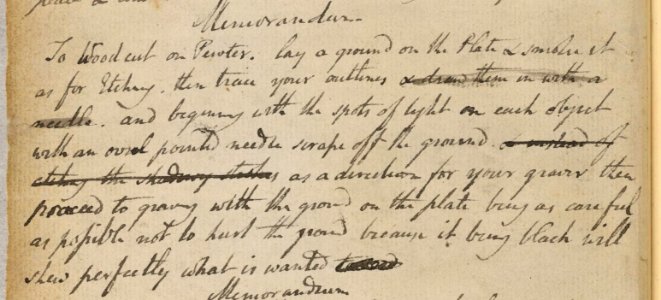 Memorandum
To Woodcut on Pewter. lay a ground on the Plate & smoke it
as for Etching. then trace your outlines & draw them in with a
needle. and beginning with the spots of light on each object
with an oval pointed needle scrape off the ground. & instead of
etching the shadowy strokes as a direction for your graver then
proceed to graving with the ground on the plate being as careful
as possible not to hurt the ground because it being black will
shew perfectly what is wanted
Memorandum